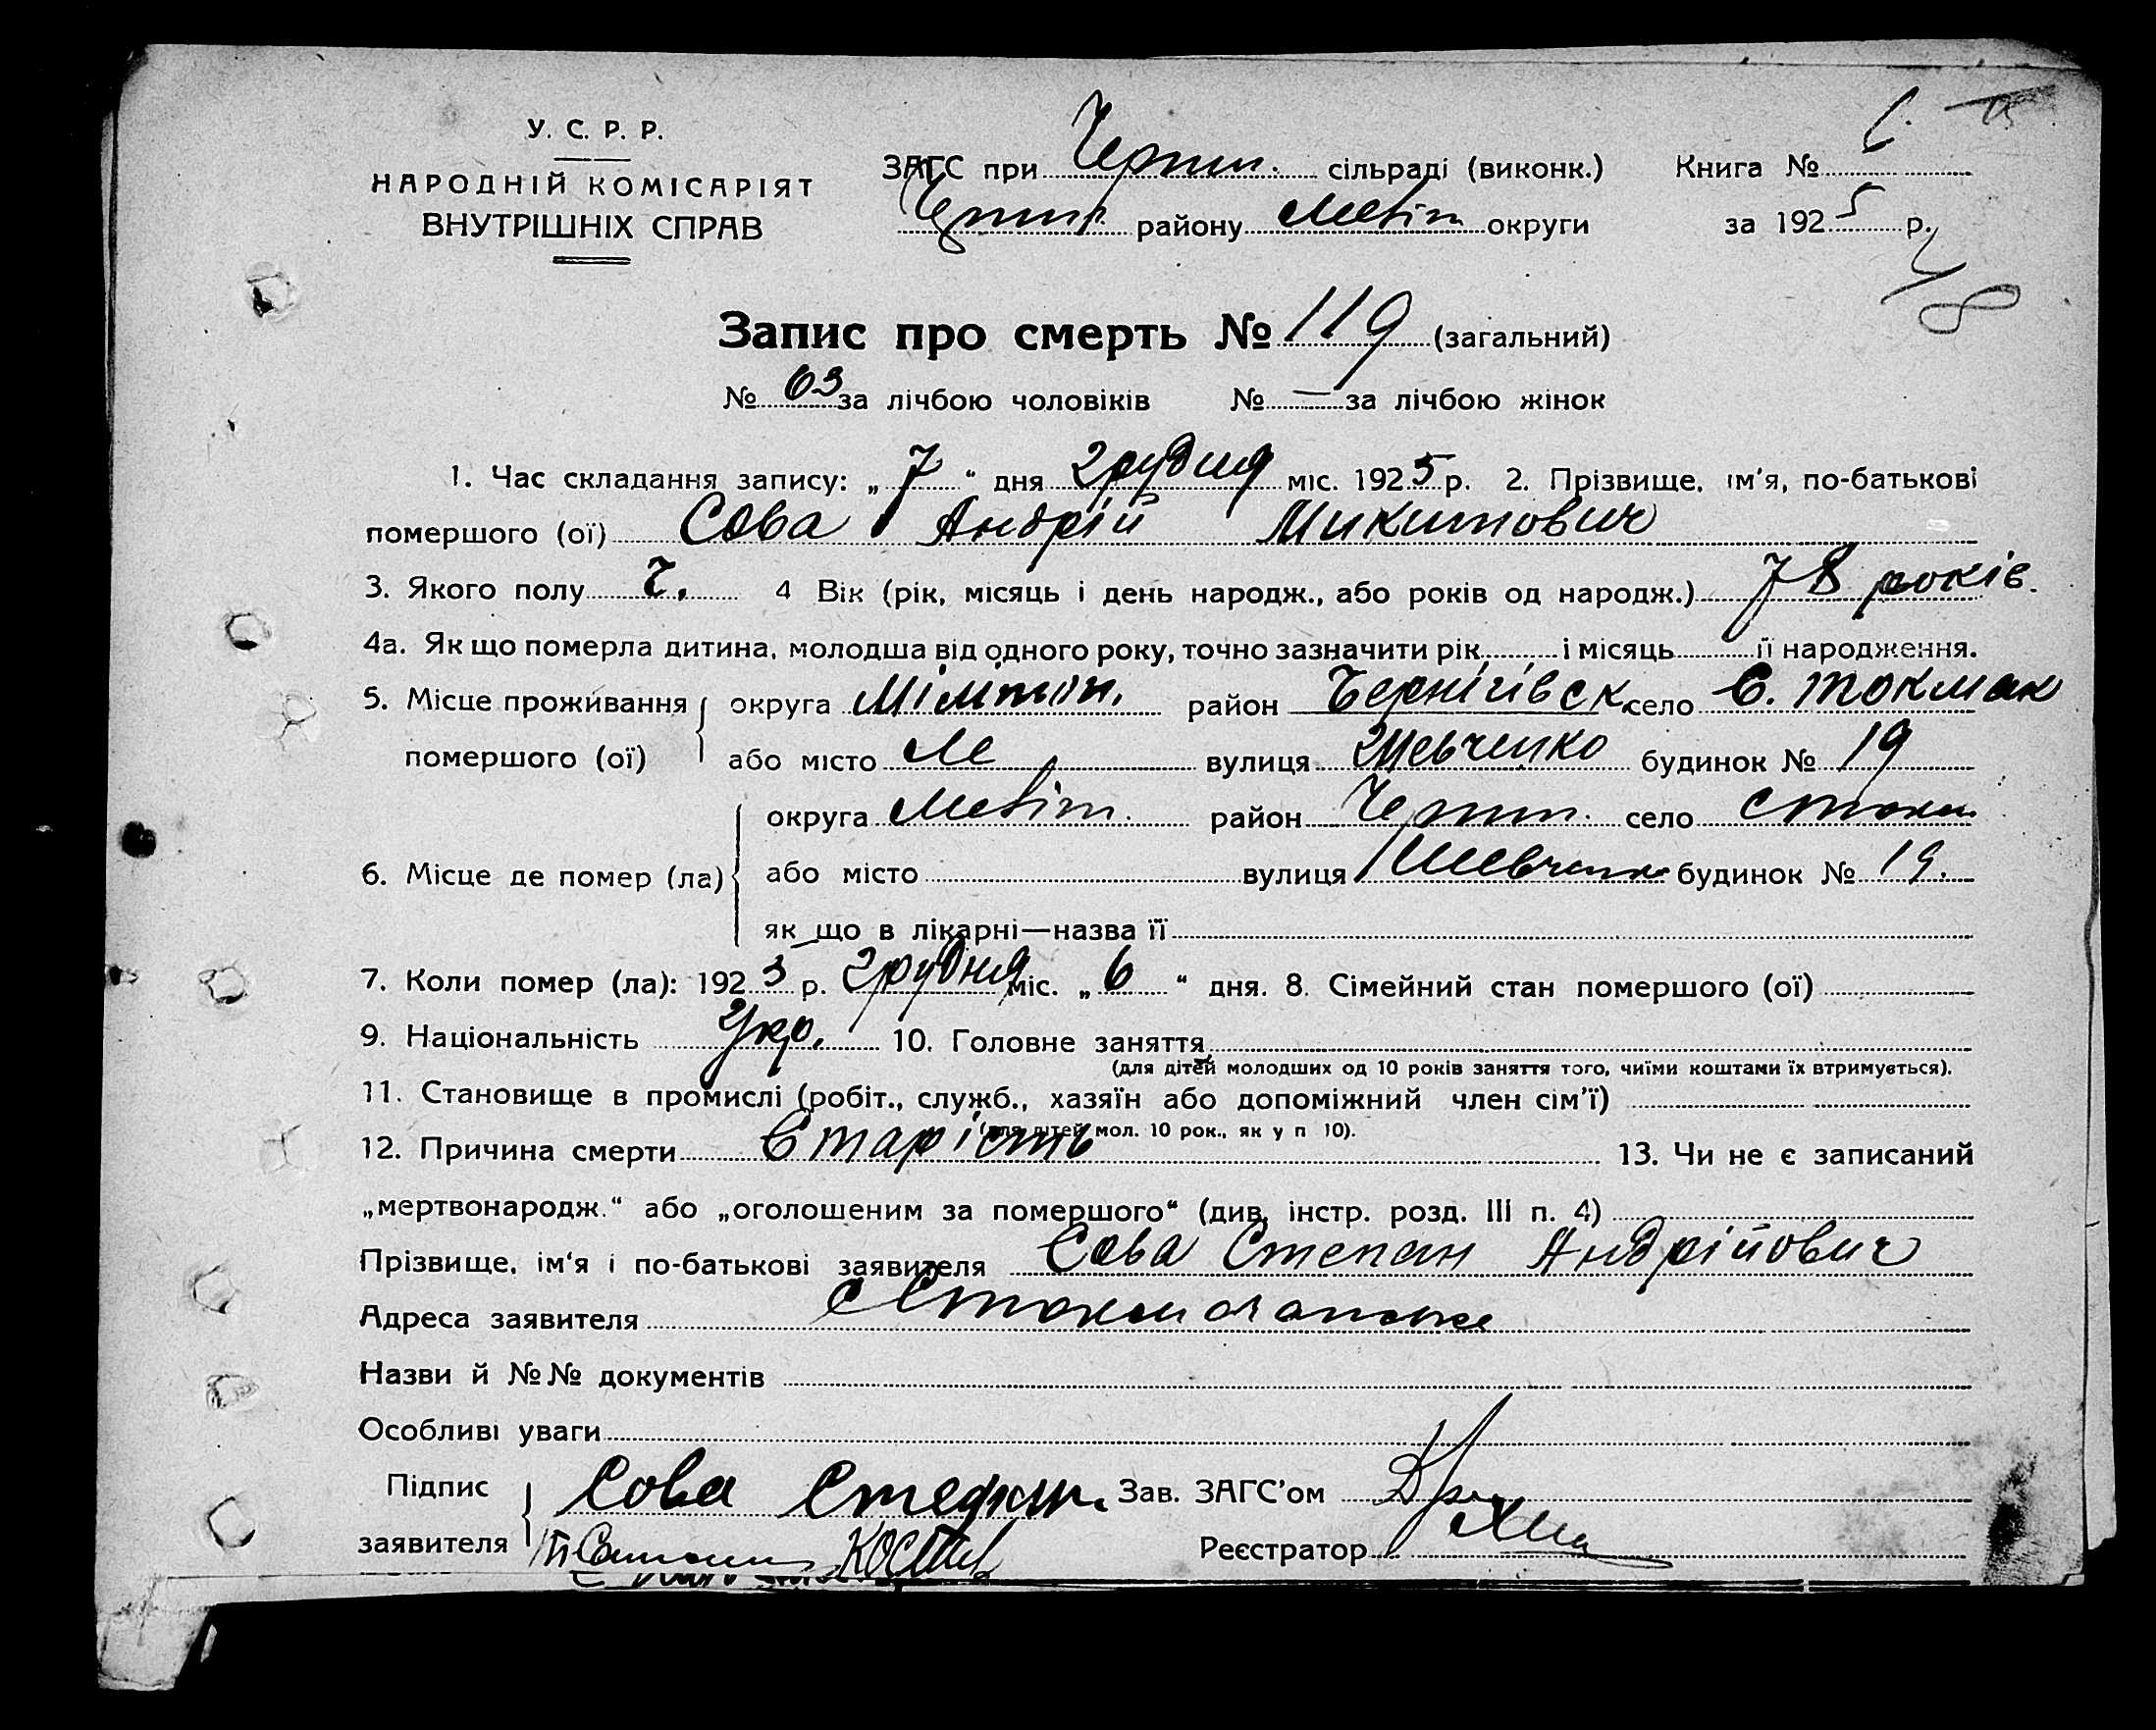 У. С. Р. Р.
НАРОДНІЙ КОМІСАРІЯТ
ВНУТРІШНІХ СПРАВ
ЗАГС при сільраді (виконк.)
району округи
Книга № 6
за 1925 р.
48
Запис про смерть № 119 (загальний)
№ 63 за лічбою чоловіків № — за лічбою жінок
1. Час складання запису: „7“ дня грудня міс. 1925 р. 2. Прізвище, ім'я, по-батькові
помершого (ої) Сова Андрій Микитович
3. Якого полу ч. 4 Вік (рік, місяць і день народж., або років од народж.) 78 років.
4а. Як що померла дитина, молодша від одного року, точно зазначити рік і місяць її народження.
5. Місце проживання помершого (ої) округа район Чернігівск село С. Токмак
або місто вулиця Шевченко будинок № 19
6. Місце де помер (ла) округа район село
або місто вулиця Шевченко будинок № 19.
як що в лікарні—назва її
7. Коли помер (ла): 192 р. грудня міс. „6“ дня. 8. Сімейний стан помершого (ої)
9. Національність Укр. 10. Головне заняття
(для дітей молодших од 10 років заняття того, чиїми коштами їх втримується).
11. Становище в промислі (робіт., служб., хазяїн або допоміжний член сім'ї)
(для дітей мол. 10 рок., як у п 10).
12. Причина смерти Старість 13. Чи не є записаний
„мертвонародж.“ або „оголошеним за помершого“ (див. інстр. розд. III п. 4)
Прізвище, ім'я і по-батькові заявителя Сова Степан Андрійович
Адреса заявителя
Назви й №№ документів
Особливі уваги
Підпис заявителя Сова Зав. ЗАГС'ом
Реєстратор